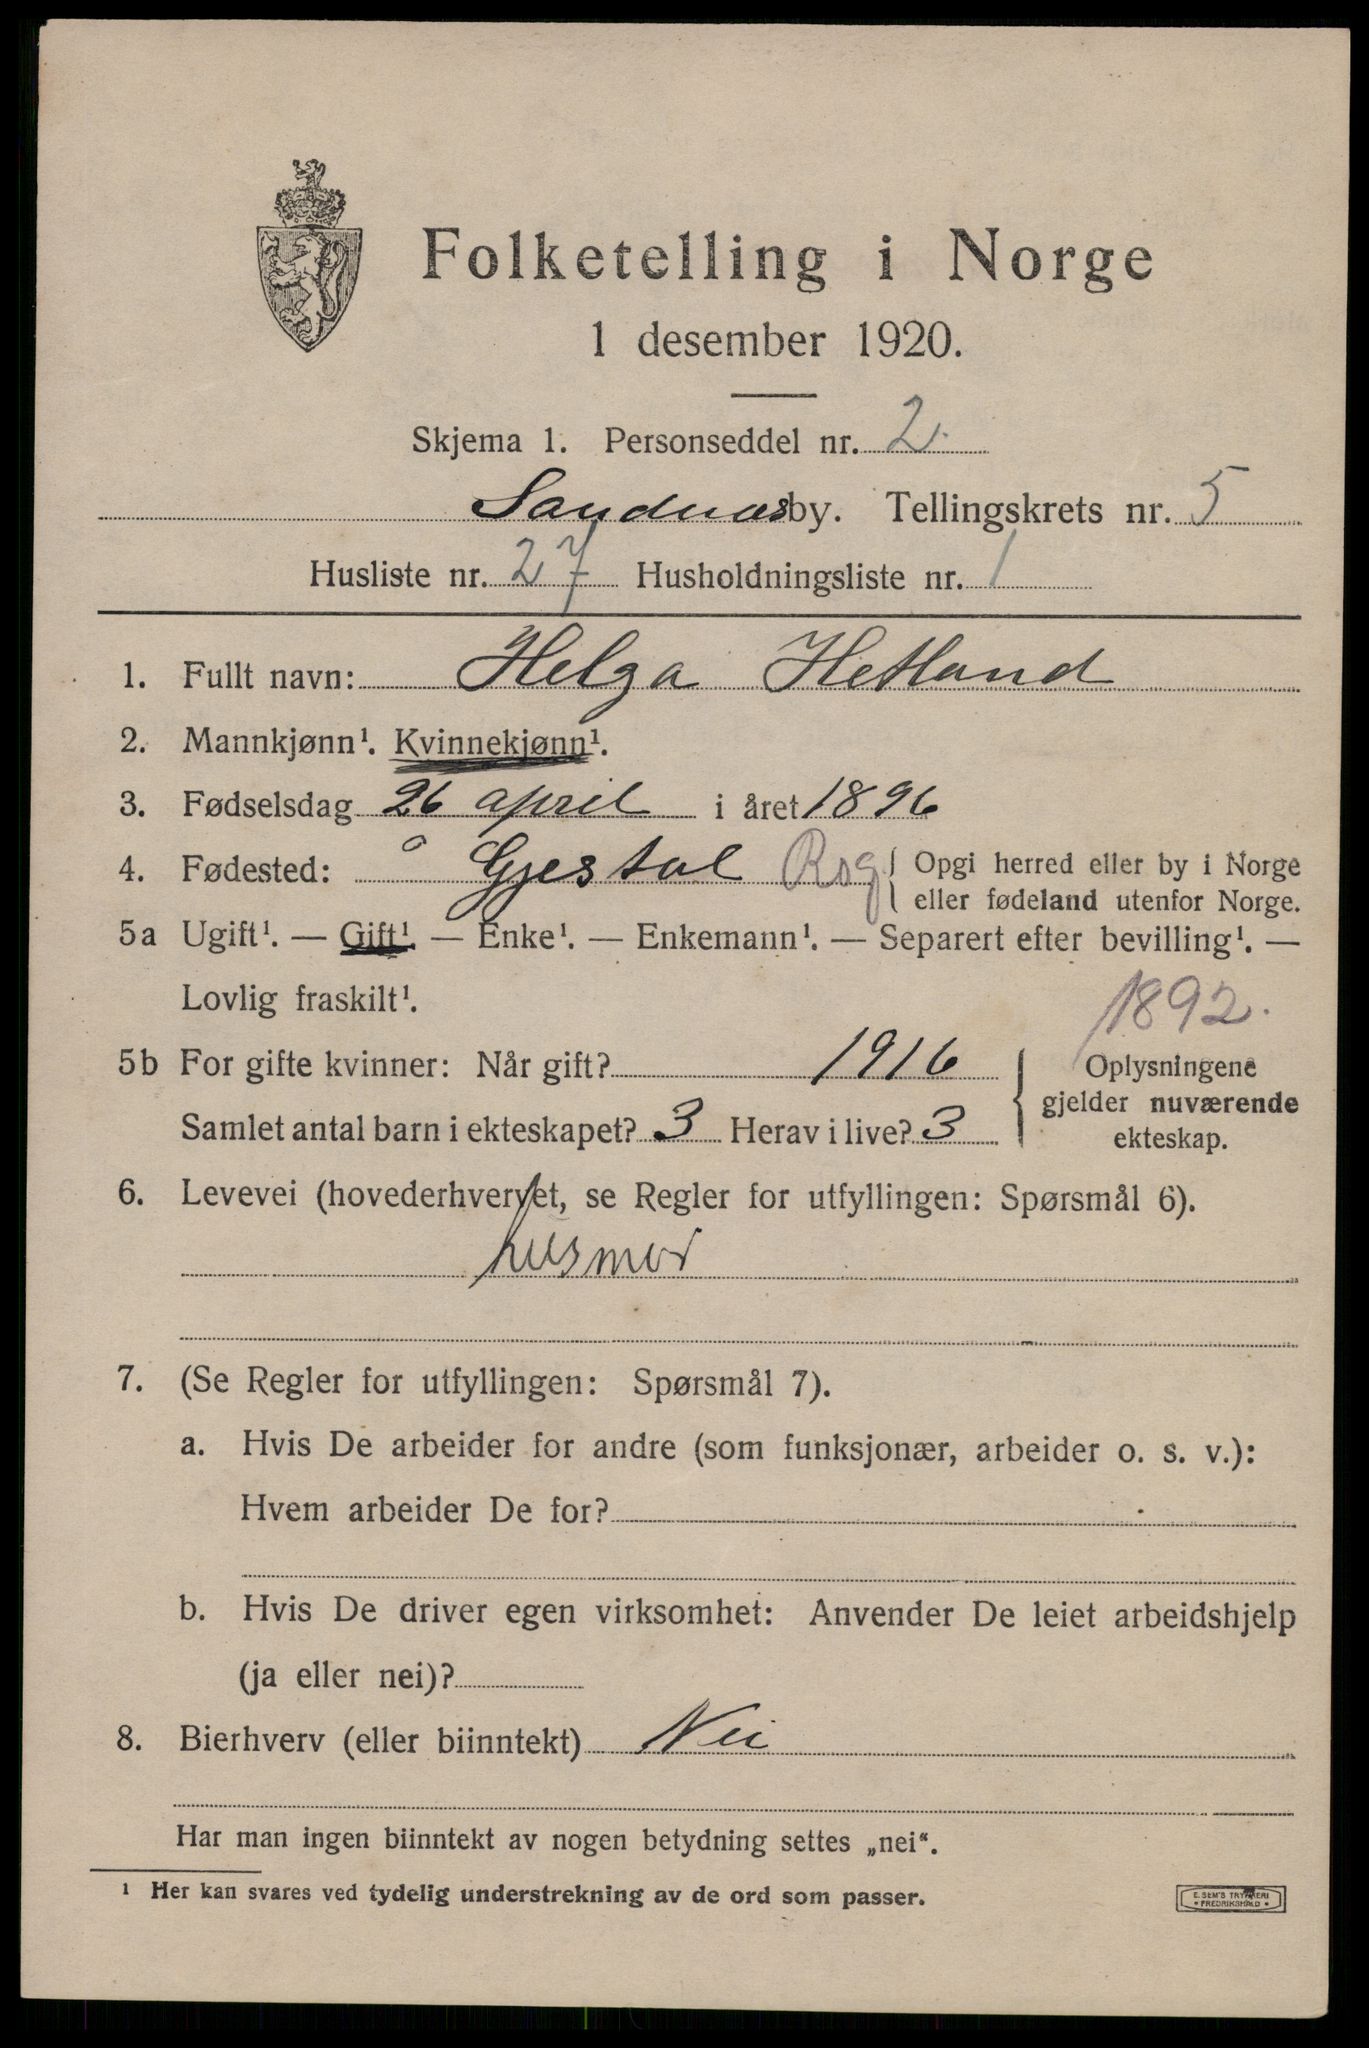 Folketelling i Norge
1 desember 1920.
Skjema 1. Personseddel nr. 2.
Sandnes by. Tellingskrets nr. 5
Husliste nr. 27 Husholdningsliste nr. 1
1. Fullt navn: Helga Hetland
2. Mannkjønn¹. Kvinnekjønn¹.
3. Fødselsdag 26 april i året 1896
4. Fødested: Gjestal Rog { Opgi herred eller by i Norge
eller fødeland utenfor Norge.
5a Ugift¹. — Gift¹. — Enke¹. — Enkemann¹. — Separert efter bevilling¹. —
Lovlig fraskilt¹.
1892.
5b For gifte kvinner: Når gift? 1916
Samlet antal barn i ekteskapet? 3 Herav i live? 3
Oplysningene
gjelder nuværende
ekteskap.
6. Levevei (hovederhvervet, se Regler for utfyllingen: Spørsmål 6).
husmor
7. (Se Regler for utfyllingen: Spørsmål 7).
a. Hvis De arbeider for andre (som funksjonær, arbeider o. s. v.):
Hvem arbeider De for?
b. Hvis De driver egen virksomhet: Anvender De leiet arbeidshjelp
(ja eller nei)?
8. Bierhverv (eller biinntekt) Nei
Har man ingen biinntekt av nogen betydning settes „nei“.
¹ Her kan svares ved tydelig understrekning av de ord som passer.
E. SEM'S TRYKKERI
• FREDRIKSHALD •